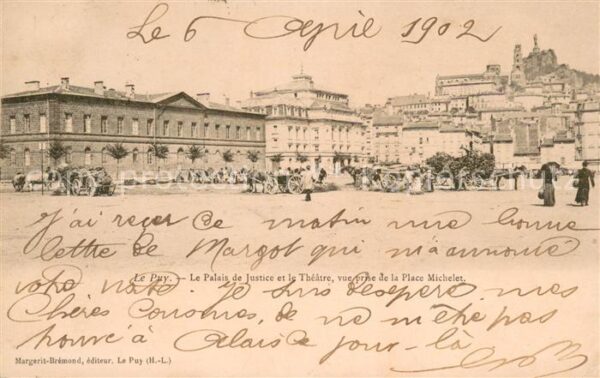 Le 6 Avril 1902
J'ai reçu ce matin une bonne
lettre de Margot qui m'a annoncé
Le Puy. — Le Palais de Justice et le Théâtre, vue prise de la Place Michelet.
votre visite. Je suis désespéré, mes
Chères Cousines, de ne m'être pas
trouvé à Alais ce jour-là
Margerit-Brémond, éditeur. Le Puy (H.-L.)